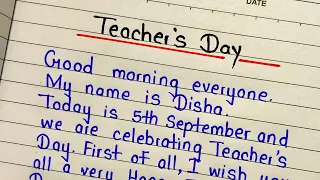 DATE
Teacher's Day
Good morning everyone.
My name is Disha.
Today is 5th September and
we are celebrating Teacher's
Day. First of all, I wish you
all a very